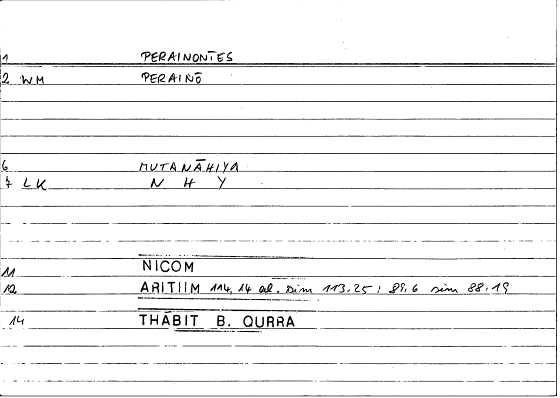 1 PERAINONTES
2 WM PERAINŌ
6 MUTANĀHIYA
7 LK N H Y
11 NICOM
12 ARITIIM 114,14 al. sim 113.25; 89.6 sim 88.19
14 THĀBIT B. QURRA